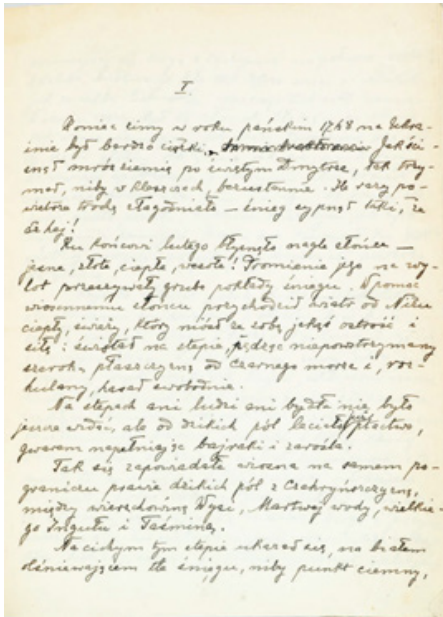 I.
Koniec zimy w roku pańskim 1768 na Ukra-
inie był bardzo ciężki. Jak ści-
snął mróz ziemię po świętym Dmytrze, tak trzy-
mał, niby w kleszczach, bezustannie. Ile razy po-
wietrze trochę złagodniało – śnieg sypnął taki, że
aż hej!
Ku końcowi lutego błysnęło nagle słońce –
jasne, złote, ciepłe, wesołe! Promienie jego na wy-
lot przeszywały grube pokłady śniegu. W pomoc
wiosennemu słońcu przychodził wiatr od
ciepły, świeży, który niósł ze sobą jakąś ostrość i
siłę: świstał na stepie, pędząc niepowstrzymany
szeroką płaszczyzną od Czarnego morza i, roz-
hulany, hasał swobodnie.
Na stepach ani ludzi ani bydła nie było
jeszcze widać, ale od dzikich pól leciało już ptactwo,
gwarem napełniając bajraki i zarośla.
Tak się zapowiadała wiosna na samem po-
graniczu prawie dzikich pól z Czehryńszczyzną,
między wierzchowiną Wysi, Martwej wody, wielkie-
go Ingułu i Taśminą.
Na cichym tym stepie ukazał się, na białem
olśniewającem tle śniegu, niby punkt ciemny,